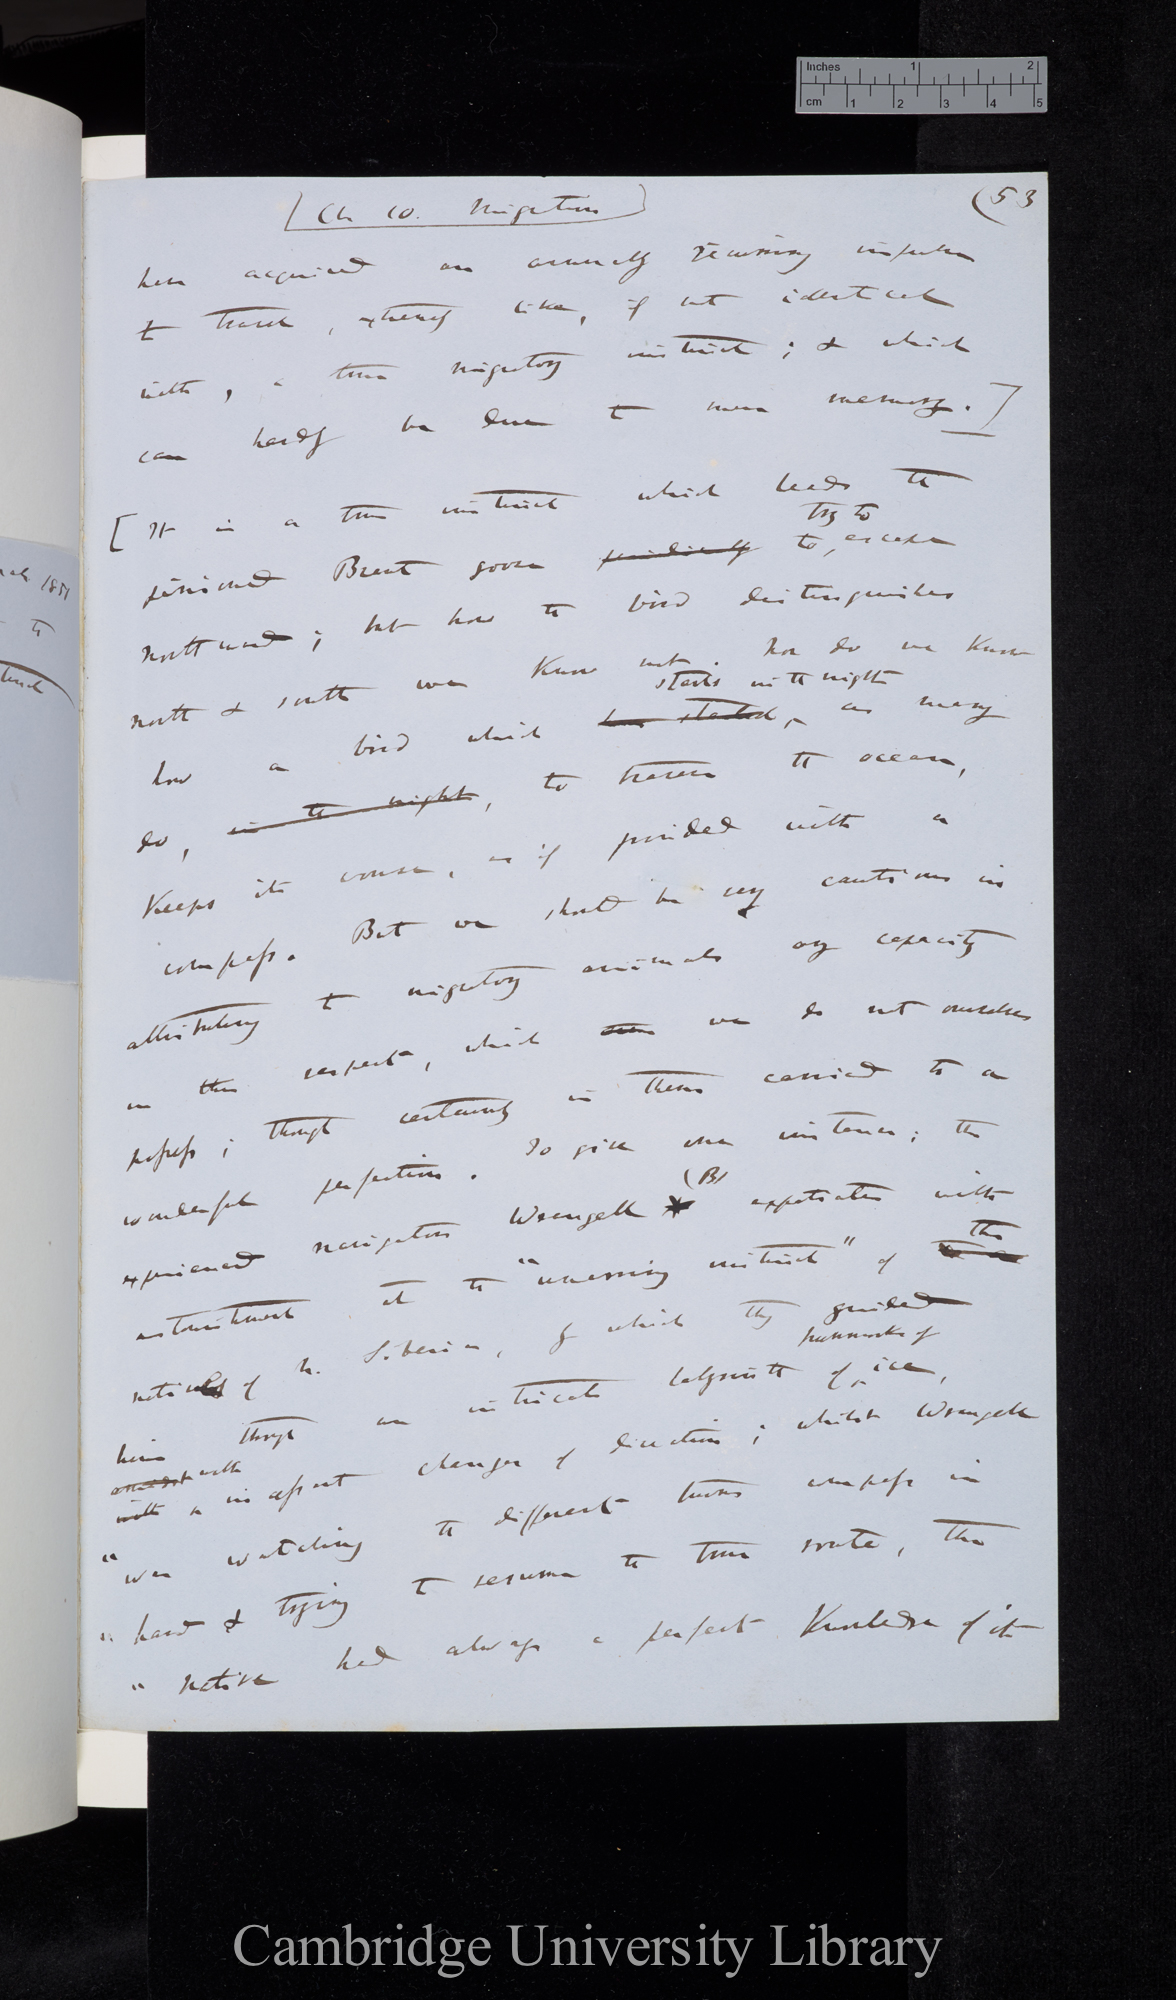 Inches 1 2
cm 1 2 3 4 5
(Ch 10. Migration)
(53
have acquired an annually recurring impulse
to travel, extremely like, if not identical
with, a true migratory instinct; & which
can hardly be due to mere memory.]
[It is a true instinct which leads the
try to
pinioned Brent goose to escape
northward; but how the bird distinguishes
north & south we know not. Nor do we know
starts in the night
how a bird which has started, as many
do, in the night, to traverse the ocean,
keeps its course, as if provided with a
compass. But we should be very cautious in
attributing to migratory animals any capacity
in this respect, which even we do not ourselves
possess; though certainly in them carried to a
wonderful perfection. To give one instance; the
(B)
experienced navigator Wrangell * expatiates with
the
astonishment at the "unerring instinct" of
natives of N. Siberia, by which they guided
hummocks of
him through an intricate labyrinth of ice,
amidst with
with a incessant changes of direction; whilst Wrangell
"was watching the different turns compass in
"hand & trying to resume the true route, the
"native had always a perfect knowledge of it
1851